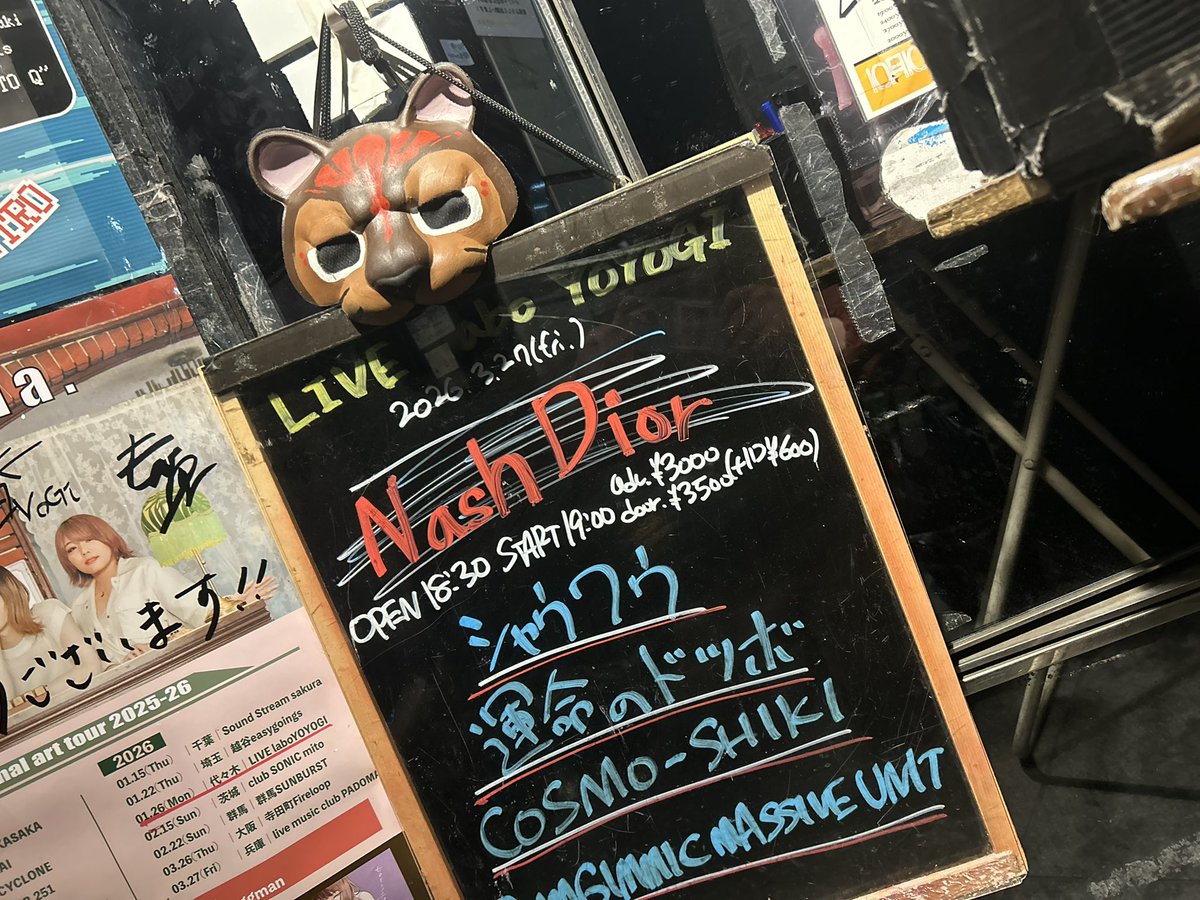 TO Q"
LIVE labo YOYOGI
2026. 3.27(fri.)
Nash Dior
adv.¥3000
OPEN 18:30 START 19:00 door.¥3500(+1D¥600)
シャウワウ
運命のドツボ
COSMO-SHIKI
MASSIVE UMT
a.
ございます!!
nal art tour 2025-26
2026
01.15(Thu) 千葉 | Sound Stream sakura
01.22(Thu) 埼玉 | 越谷easygoings
01.26(Mon) 代々木 | LIVE laboYOYOGI
02.15(Sun) 茨城 | club SONIC mito
02.22(Sun) 群馬 | 群馬SUNBURST
03.26(Thu) 大阪 | 寺田町Fireloop
03.27(Fri) 兵庫 | live music club PADOMA
KASAKA
AI
CYCLONE
251
gman